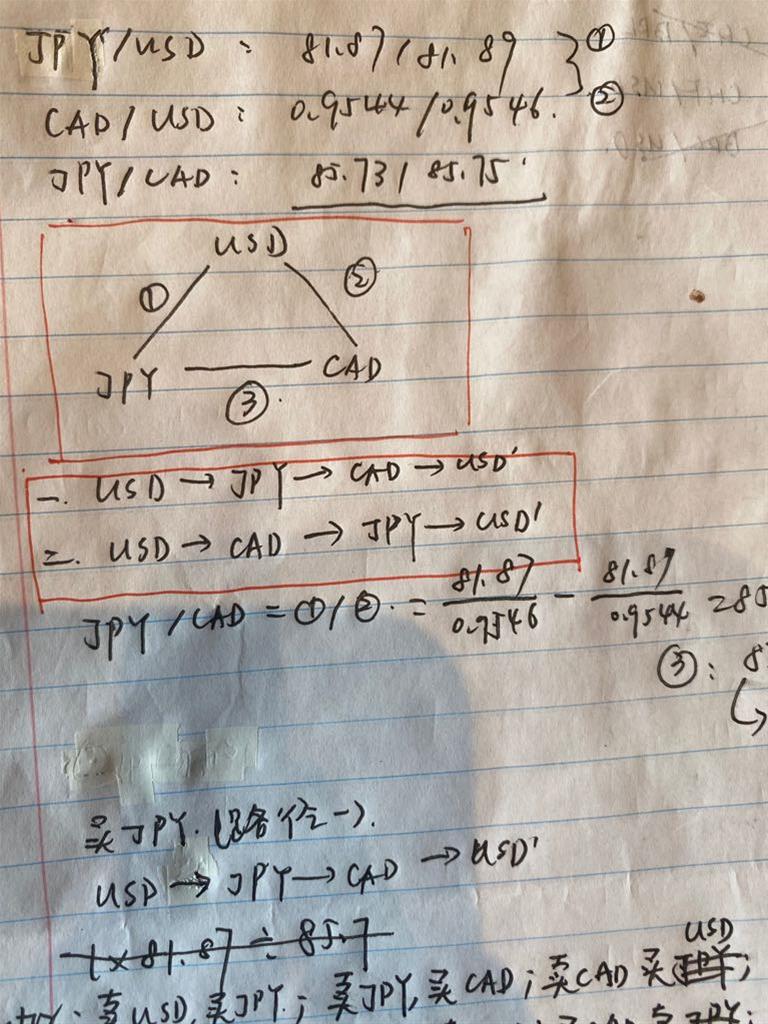 JPY/USD : 81.87/81.89 } ①
CAD/USD : 0.9544/0.9546. ②
JPY/CAD : 85.73/85.75
USD
① ②
JPY CAD
③
一. USD → JPY → CAD → USD'
二. USD → CAD → JPY → USD'
JPY/CAD = ①/② = 81.87/0.9546 - 81.89/0.9544 = 85
③: 8
买JPY. (路径一).
USD → JPY → CAD → USD'
1×81.87 ÷ 85.7
USD
卖USD, 买JPY; 卖JPY, 买CAD; 卖CAD 买JPY;